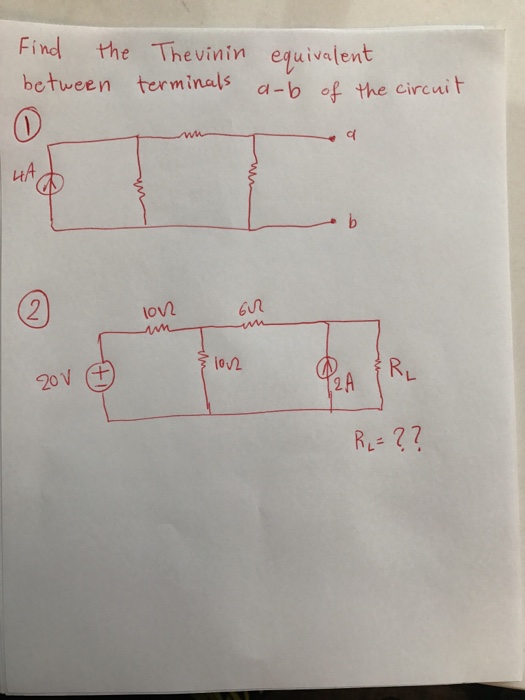 Find the Thevinin equivalent
between terminals a-b of the circuit
①
4A
a
b
②
10Ω
6Ω
20V
+
-
10Ω
2A
R_L
R_L = ??